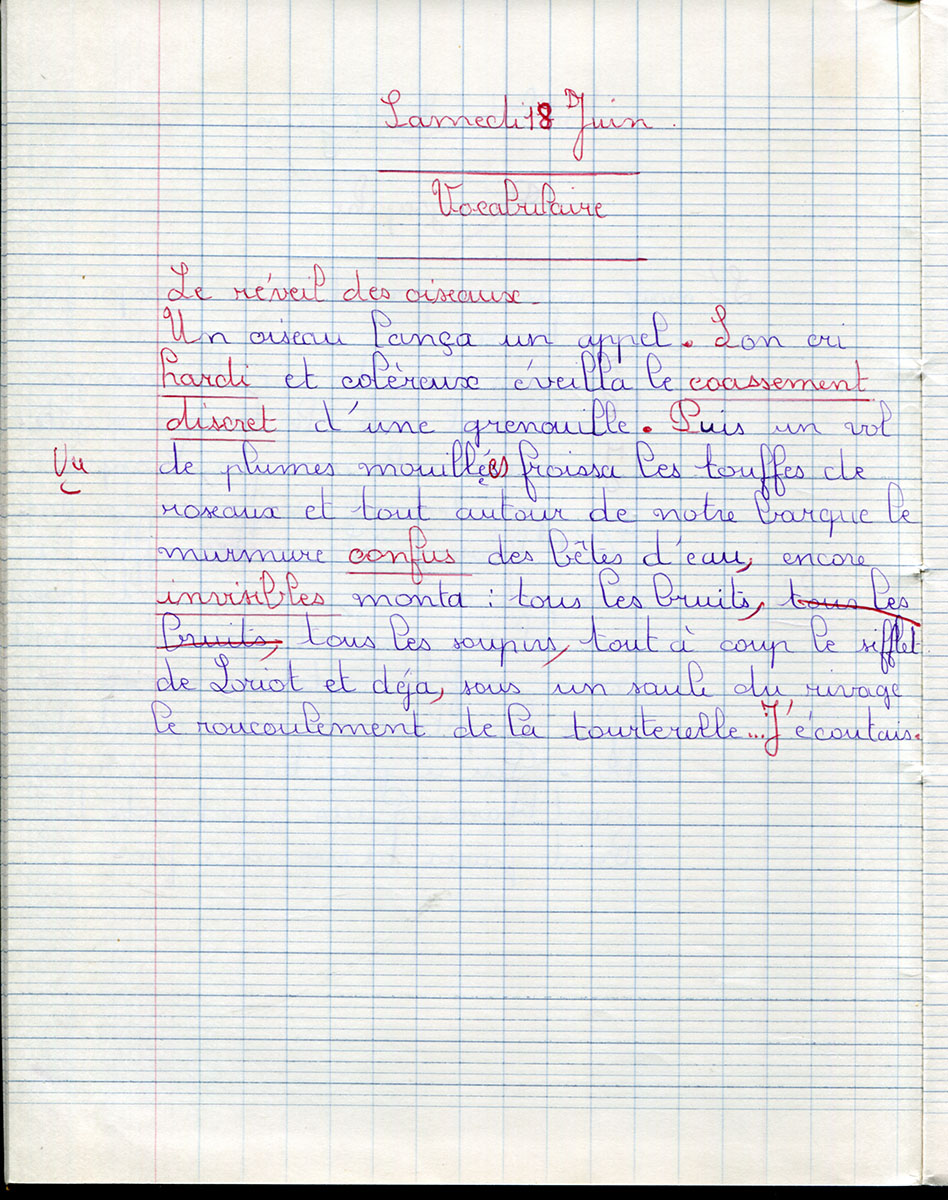 Samedi 18 Juin.
Vocabulaire
Le réveil des oiseaux.
Un oiseau lança un appel. Son cri
hardi et coléreux éveilla le coassement
discret d'une grenouille. Puis un vol
Vu
de plumes mouillées froissa les touffes de
roseaux et tout autour de notre barque le
murmure confus des bêtes d'eau, encore
invisibles monta : tous les bruits, tous les
bruits, tous les soupirs, tout à coup le sifflet
de Loriot et déjà, sous un saule du rivage
le roucoulement de la tourterelle... J'écoutais.